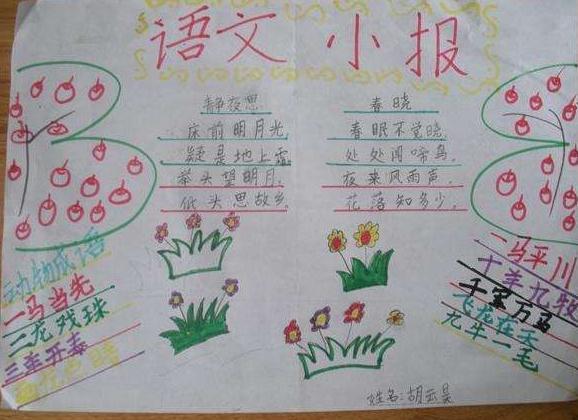 语文 小报
静夜思
床前明月光,
疑是地上霜
举头望明月,
低头思故乡.
春晓
春眠不觉晓,
处处闻啼鸟,
夜来风雨声,
花落知多少,
动物成语
一马当先
二龙戏珠
三羊开泰
一马平川
十羊九牧
千军万马
飞龙在天
九牛一毛
姓名:胡云昊